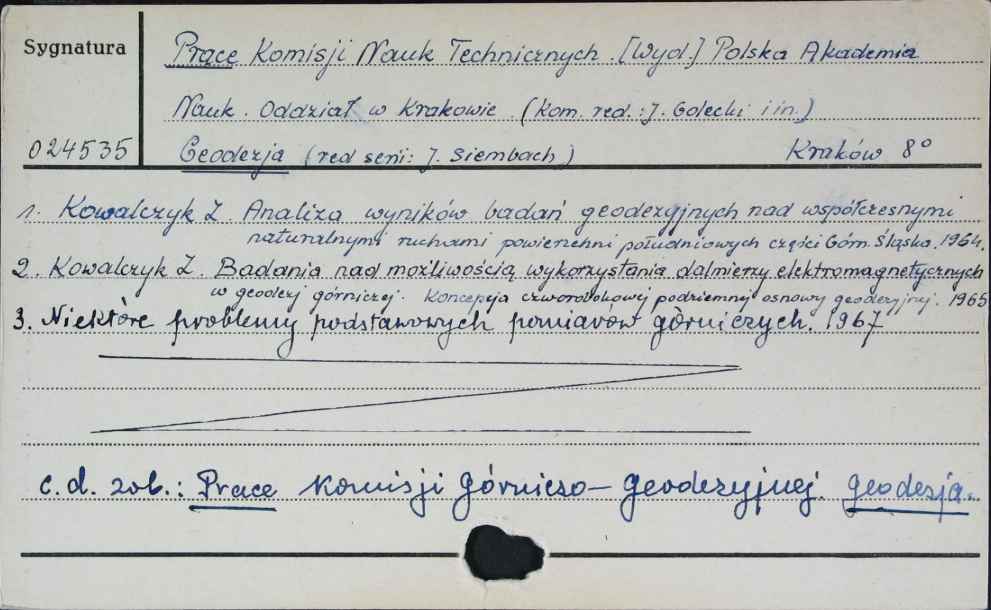 Sygnatura
Prace Komisji Nauk Technicznych. [Wyd.] Polska Akademia
Nauk. Oddział w Krakowie (Kom. red.: J. Gołecki i in.)
024535
Geodezja (red serii: J. Siembach) Kraków 8°
1. Kowalczyk Z. Analiza wyników badań geodezyjnych nad współczesnymi
naturalnymi ruchami powierzchni południowych części Górn. Śląska. 1964.
2. Kowalczyk Z. Badania nad możliwością wykorzystania dalmierzy elektromagnetycznych
w geodezj górniczej. Koncepcja czworobokowej podziemnej osnowy geodezyjnej. 1965
3. Niektóre problemy podstawowych pomiarów górniczych. 1967
c.d. zob.: Prace Komisji Górniczo-Geodezyjnej. Geodezja.